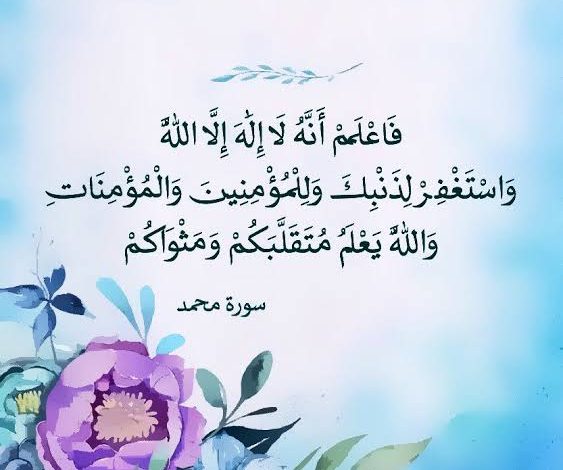 فَاعْلَمْ أَنَّهُ لَا إِلَٰهَ إِلَّا اللَّهُ
وَاسْتَغْفِرْ لِذَنْبِكَ وَلِلْمُؤْمِنِينَ وَالْمُؤْمِنَاتِ
وَاللَّهُ يَعْلَمُ مُتَقَلَّبَكُمْ وَمَثْوَاكُمْ
سورة محمد